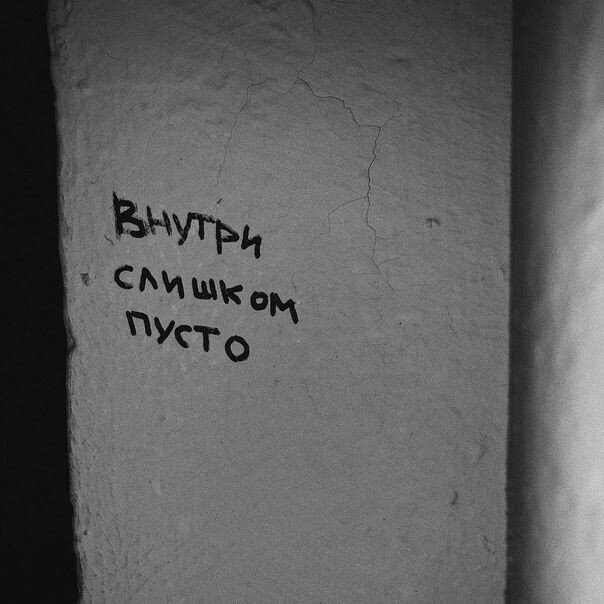 Внутри
слишком
пусто